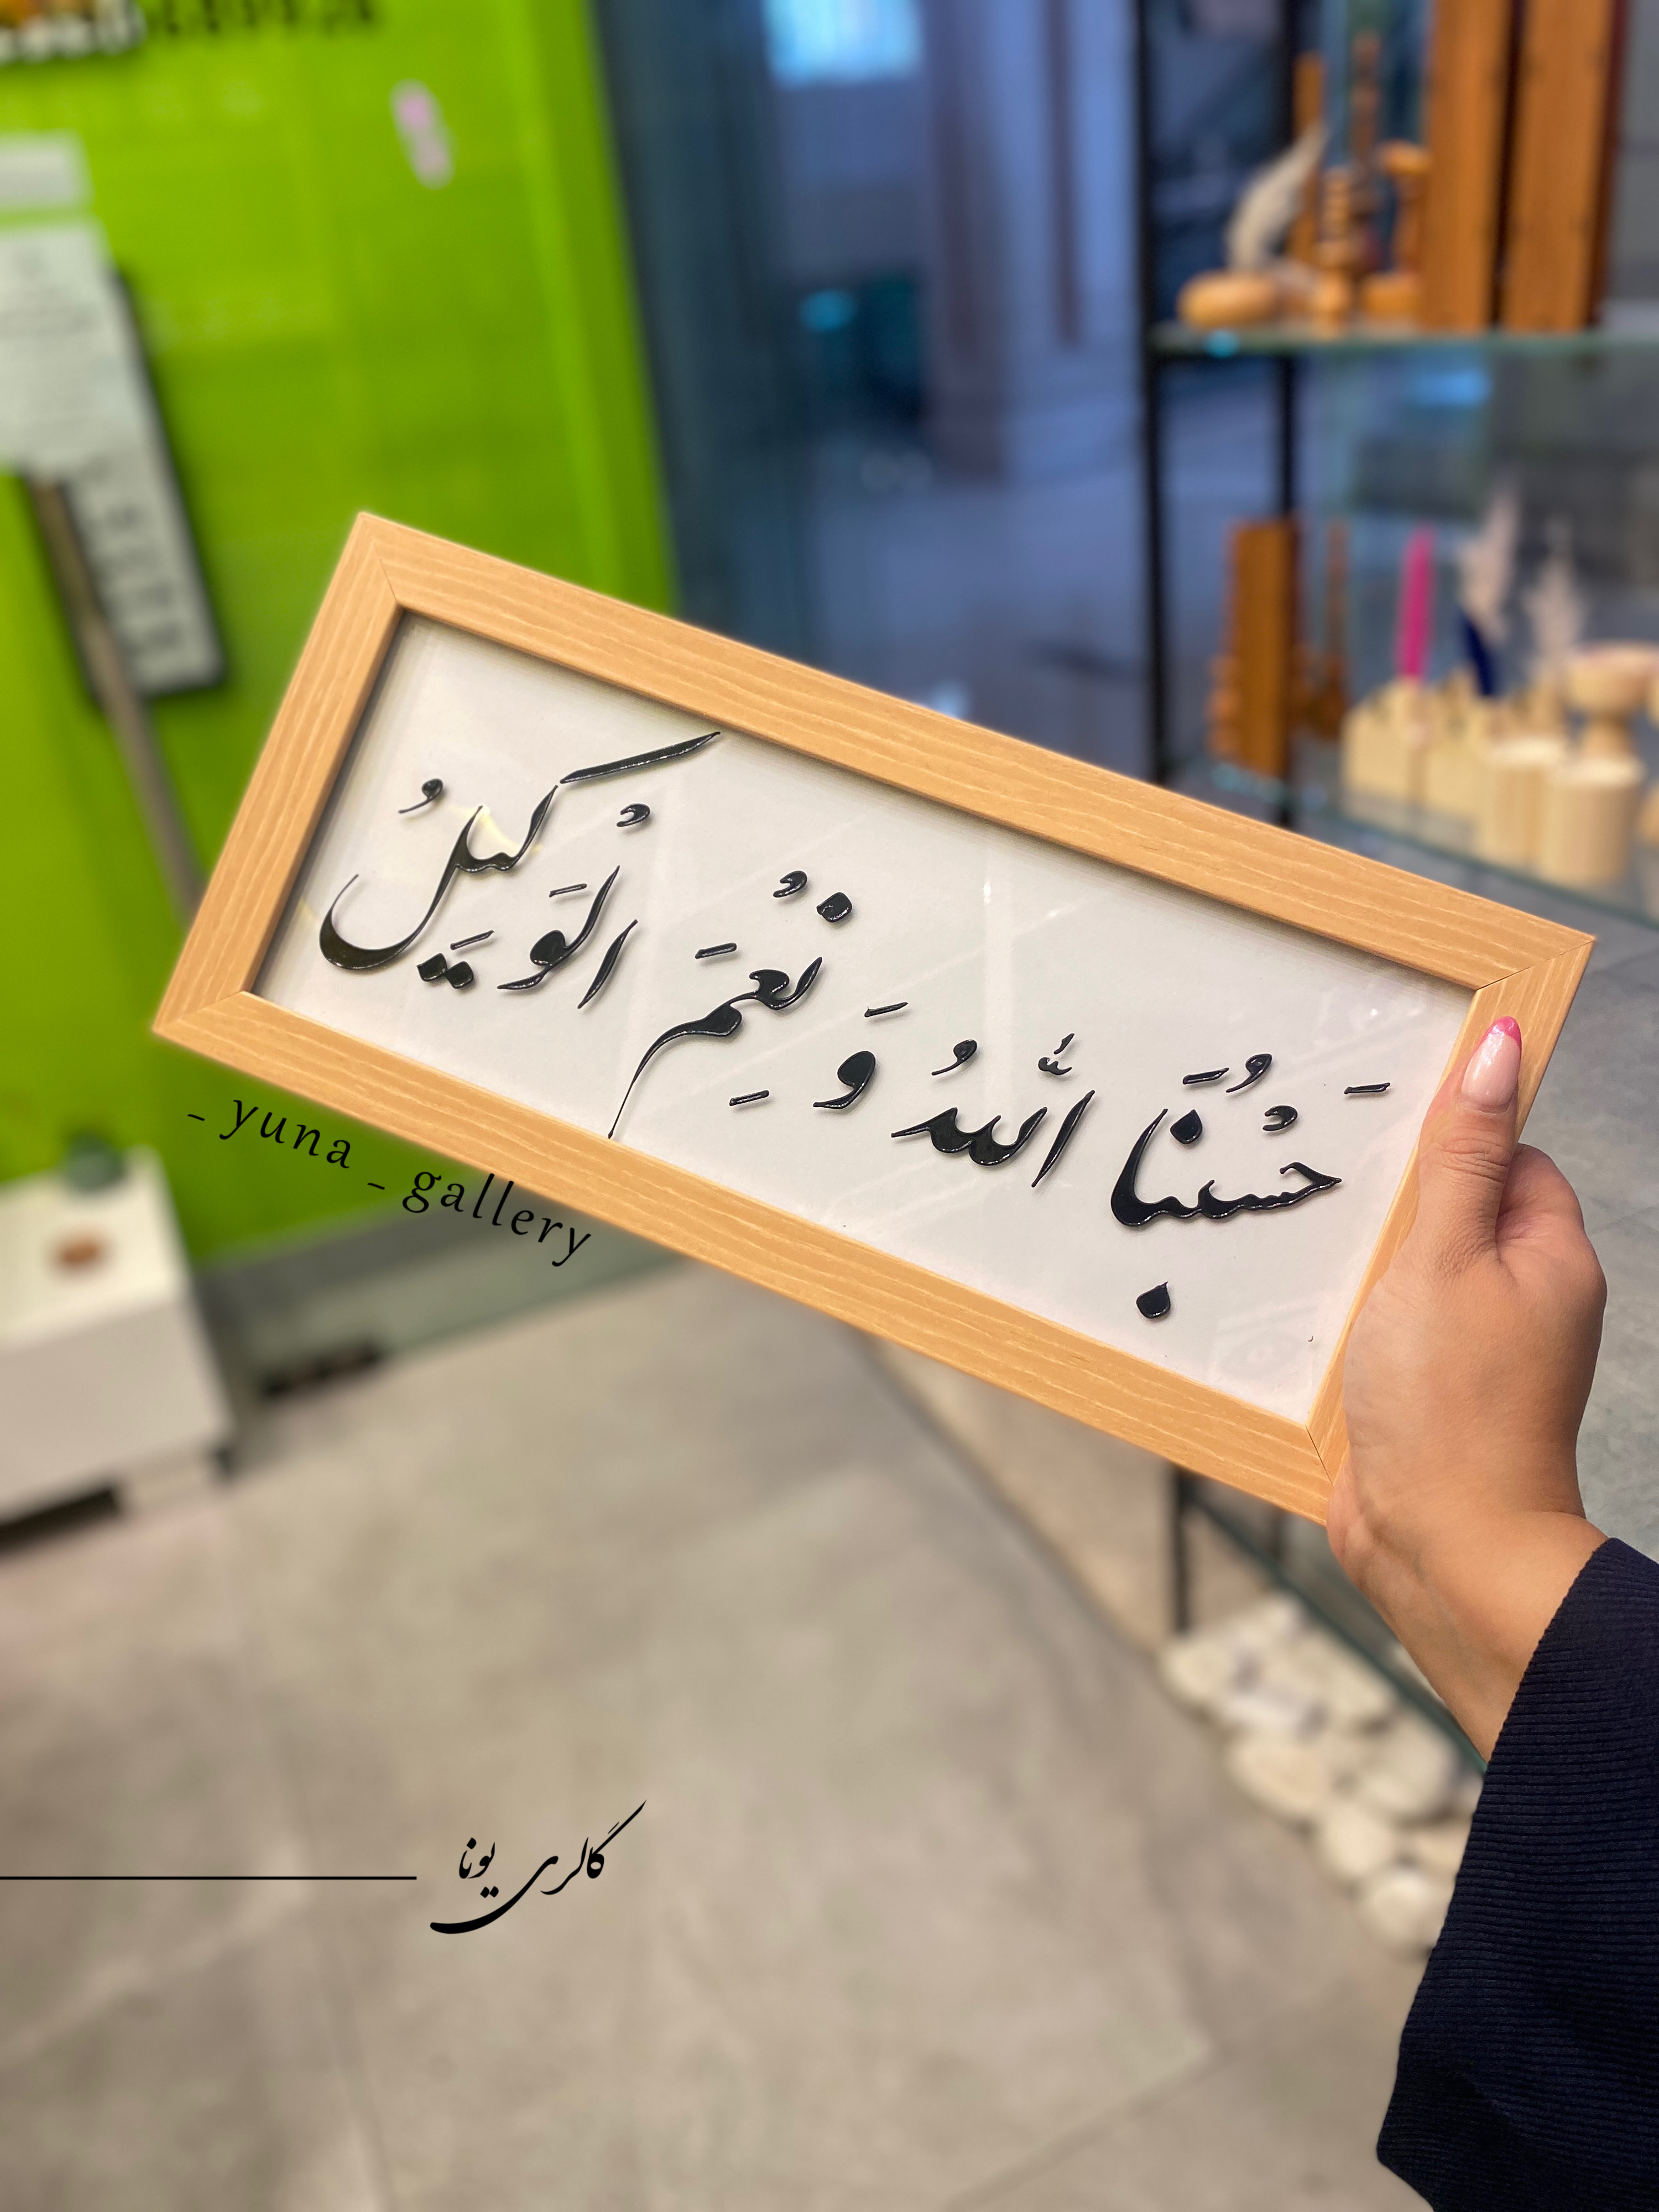 حَسْبُنَا اللّٰهُ وَ نِعْمَ الْوَكيلُ
_ yuna _ gallery
گالری یونا